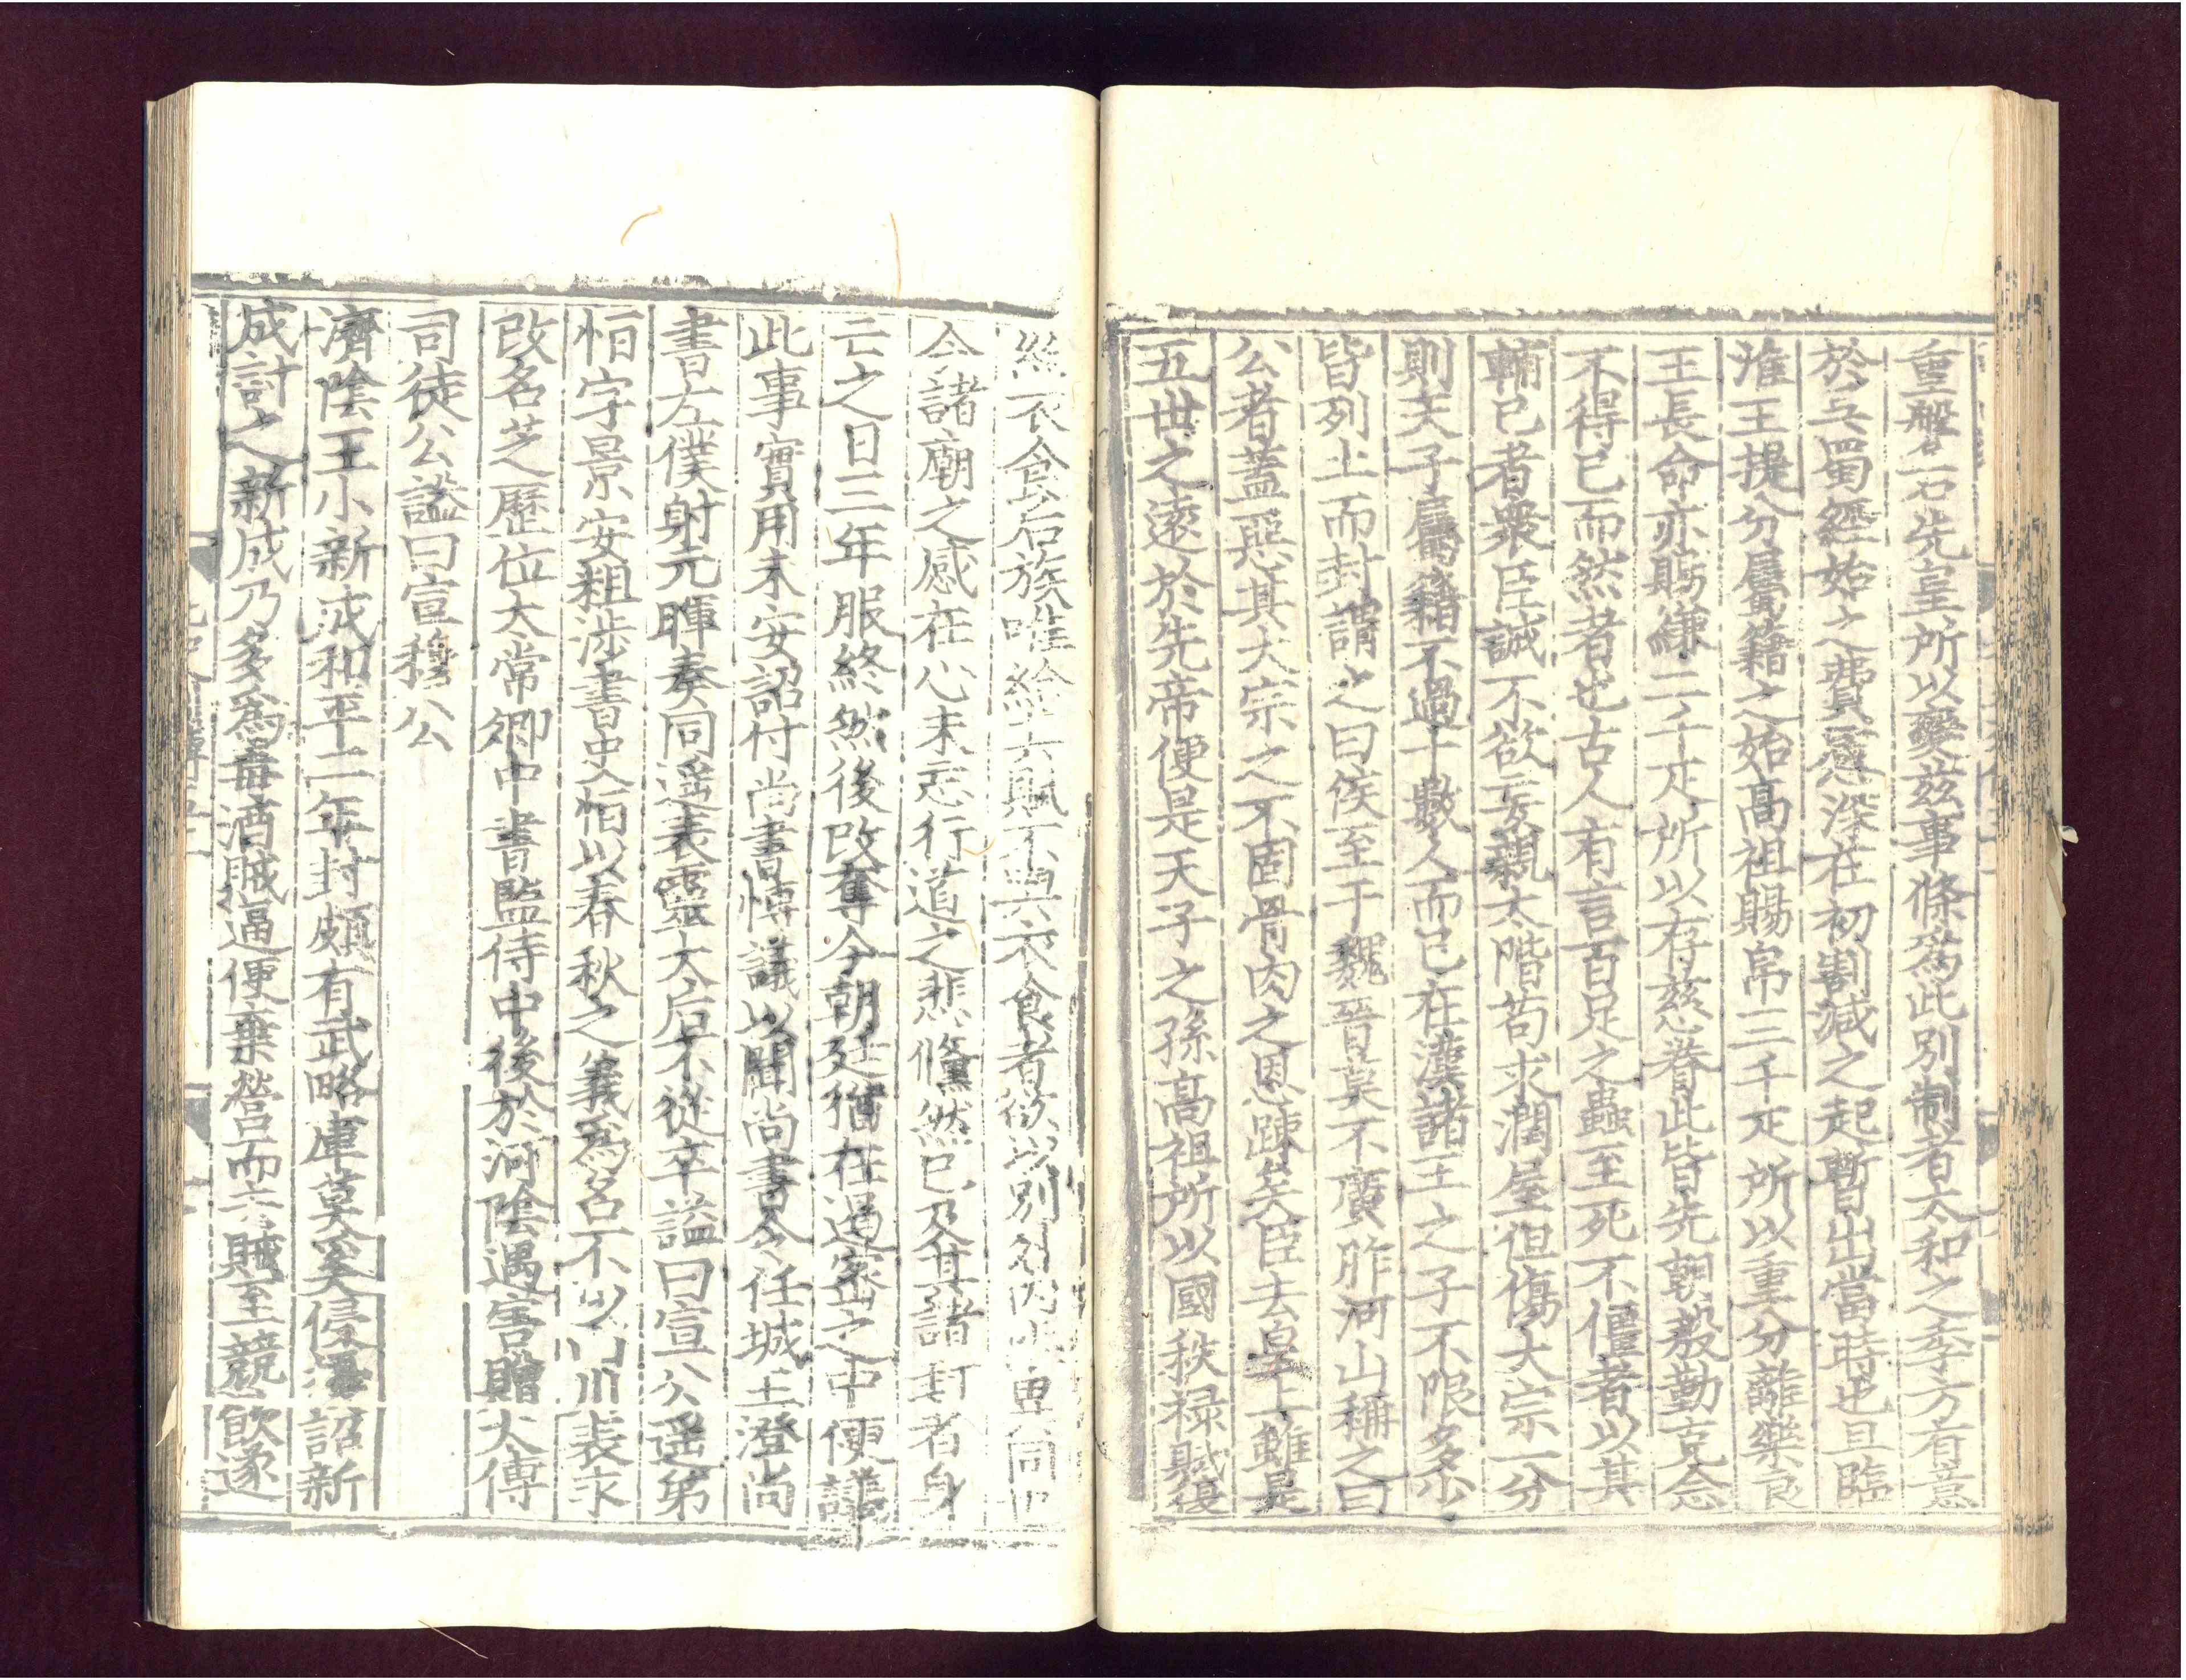 重盤石先皇所以變茲事條爲此別制者太和之季方有意
於吳蜀經始之費慮深在初割減之起暫出當時也且臨
淮王提分屬籍之始高祖賜帛三千疋所以重分離樂良
王長命亦賜縑二千疋所以存慈眷此皆先朝殷勤克念
不得已而然者也古人有言百足之蟲至死不僵者以其
輔已者衆臣誠不欲妄親太階苟求潤屋但傷大宗一分
則天子屬籍不過十數人而已在漢諸王之子不限多少
皆列土而封謂之曰侯至于魏晉莫不廣胙河山稱之曰
公者蓋惡其大宗之不固骨肉之恩踈矣臣去皇上雖是
五世之遠於先帝便是天子之孫高祖所以國秩祿賦復
給衣食后族唯給其賦不與衣食者欲以別外內 異同也
今諸廟之感在心未忘行道之悲儵然已及其諸封者身
亡之日三年服終然後改奪今朝廷猶在遏密之中便議
此事實用未安詔付尚書博議以聞尚書令任城王澄尚
書左僕射元暉奏同遥表靈太后不從卒謚曰宣公遥弟
恒字景安粗涉書史恒以春秋之義爲名不以山川表求
改名芝歷位太常卿中書監侍中後於河陰遇害贈太傅
司徒公謚曰宣穆公
濟陰王小新成和平二年封頗有武略庫莫奚侵擾詔新
成討之新成乃多爲毒酒賊逼便棄營而去賊至競飲遂